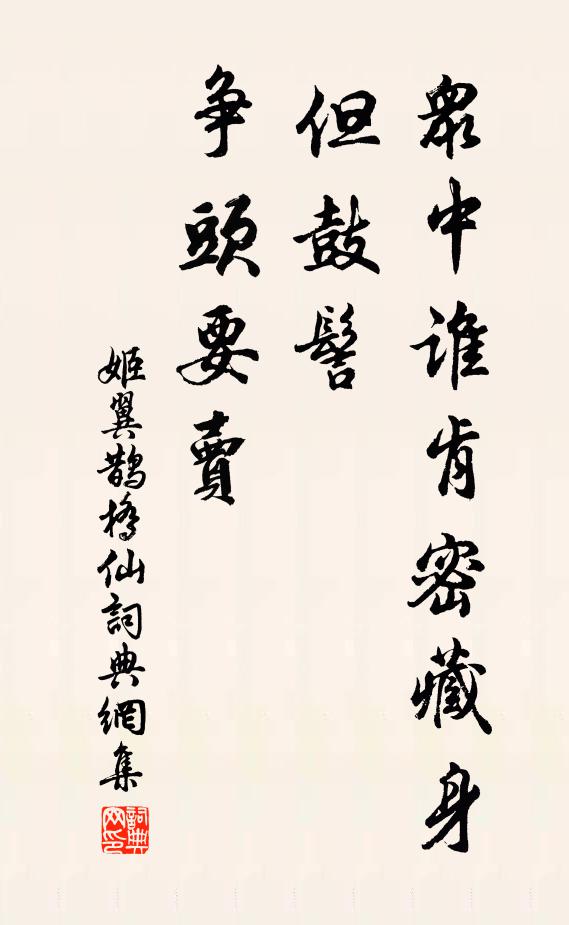 眾中誰肯密藏身
但鼓髻
爭頭要賣
姬翼鵲橋仙詞典網集
詞典网印